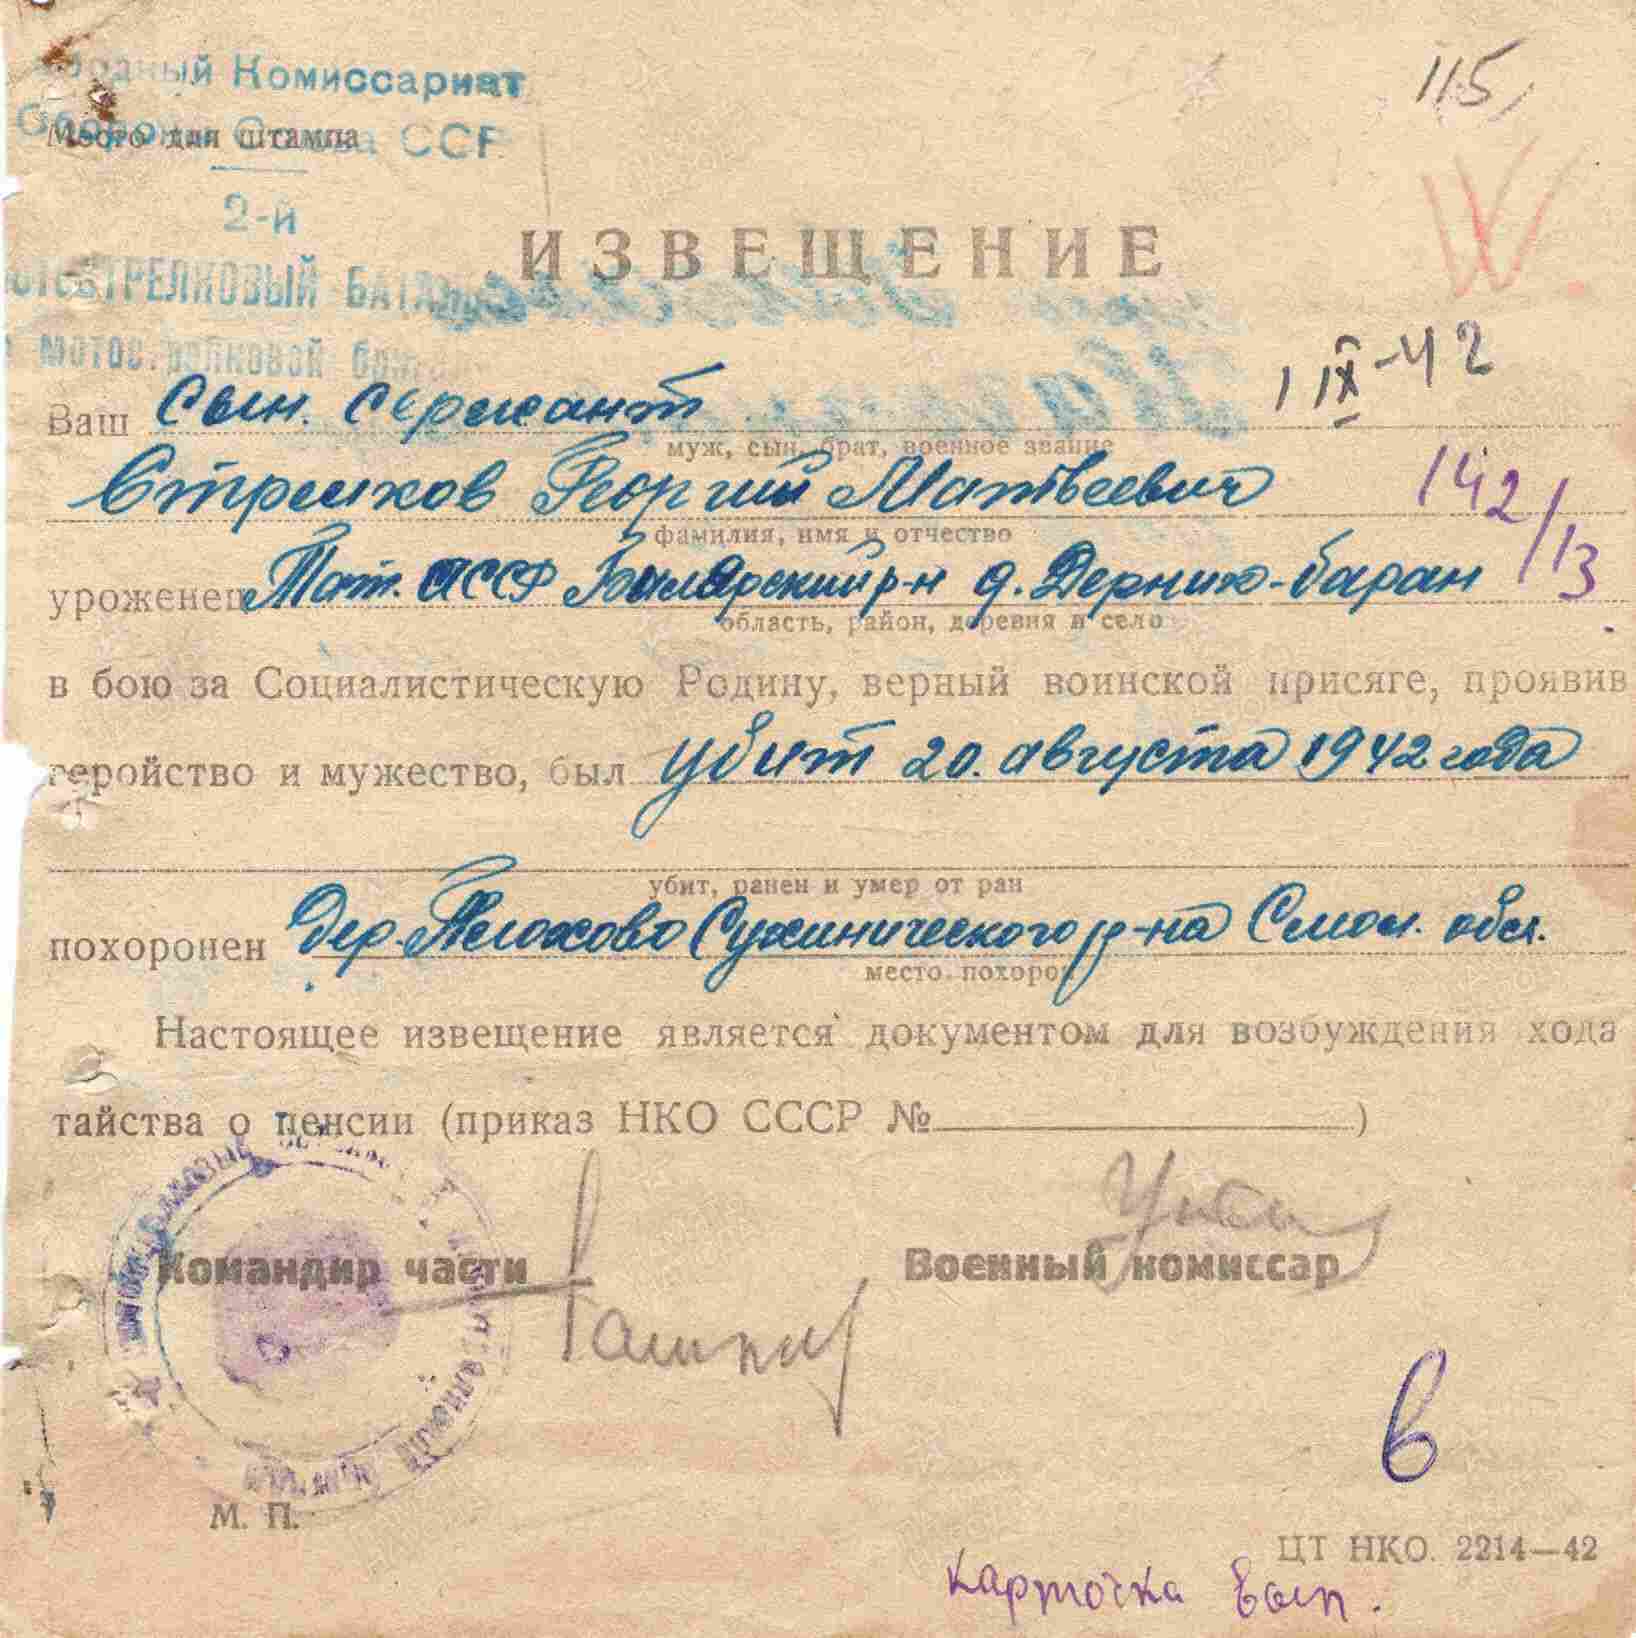 Комиссариат
Место для штампа
ССР
115,
2-й
ИЗВЕЩЕНИЕ
1 IX-42
Ваш сын. сержант
муж, сын, брат, военное звание
Георгий Матвеевич
142/13
фамилия, имя и отчество
уроженец Тат. АССР Билярский р-н д.
область, район, деревня и село
в бою за Социалистическую Родину, верный воинской присяге, проявив
геройство и мужество, был убит 20. августа 1942 года
убит, ранен и умер от ран
похоронен Дер. Сухинического р-на Смол. обл.
место похорон
Настоящее извещение является документом для возбуждения хода
тайства о пенсии (приказ НКО СССР №)
Командир части
Военный комиссар
в
М. П.
ЦТ НКО. 2214—42
карточка вып.